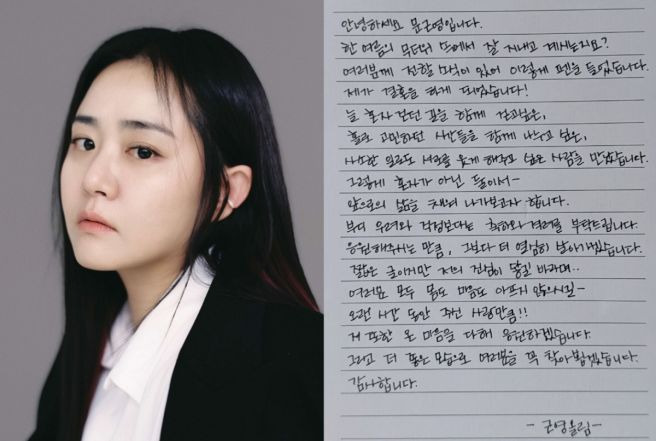 안녕하세요 문근영입니다.
한 여름의 무더위 속에서 잘 지내고 계시는지요?
여러분께 전할 소식이 있어 이렇게 펜을 들었습니다.
제가 결혼을 하게 되었습니다!
늘 혼자 걷던 길을 함께 걷고싶은,
홀로 고민하던 시간들을 함께 나누고 싶은,
사소한 일로도 서로를 웃게 해주고 싶은 사람을 만났습니다.
그렇게 혼자가 아닌 둘이서~
앞으로의 삶을 채워 나가보고자 합니다.
부디 우려와 걱정보다는 축하와 격려를 부탁드립니다.
응원해주시는 만큼, 그보다 더 열심히 살아가겠습니다.
짧은 글이지만 저의 진심이 닿길 바라며..
여러분 모두 몸도 마음도 아프지 않으시길~
오랜 시간 동안 주신 사랑만큼!!
저 또한 온 마음을 다해 응원하겠습니다.
그리고 더 좋은 모습으로 여러분을 꼭 찾아뵙겠습니다.
감사합니다.
- 근영올림 -